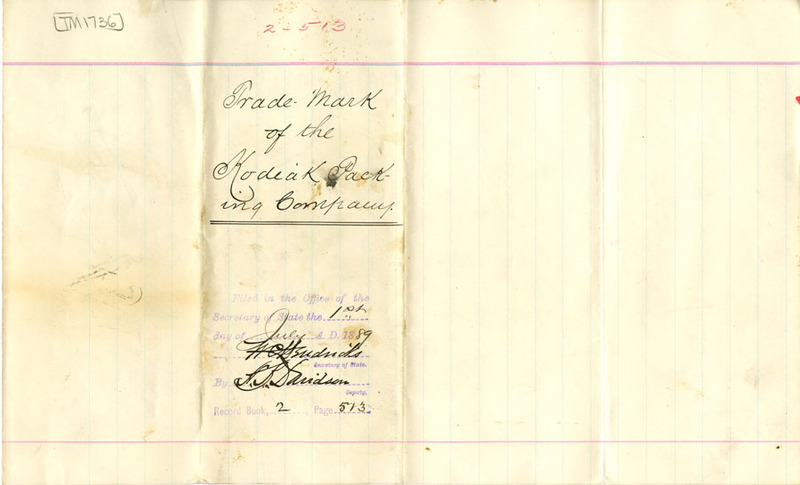 [TM1736]
2-513
Trade-Mark
of the
Kodiak Pack-
ing Company.
Filed in the Office of the
Secretary of State the 1st
day of July A. D. 1889
W C Hendricks
Secretary of State.
By S. S. Davidson
Deputy.
Record Book, 2, Page 513